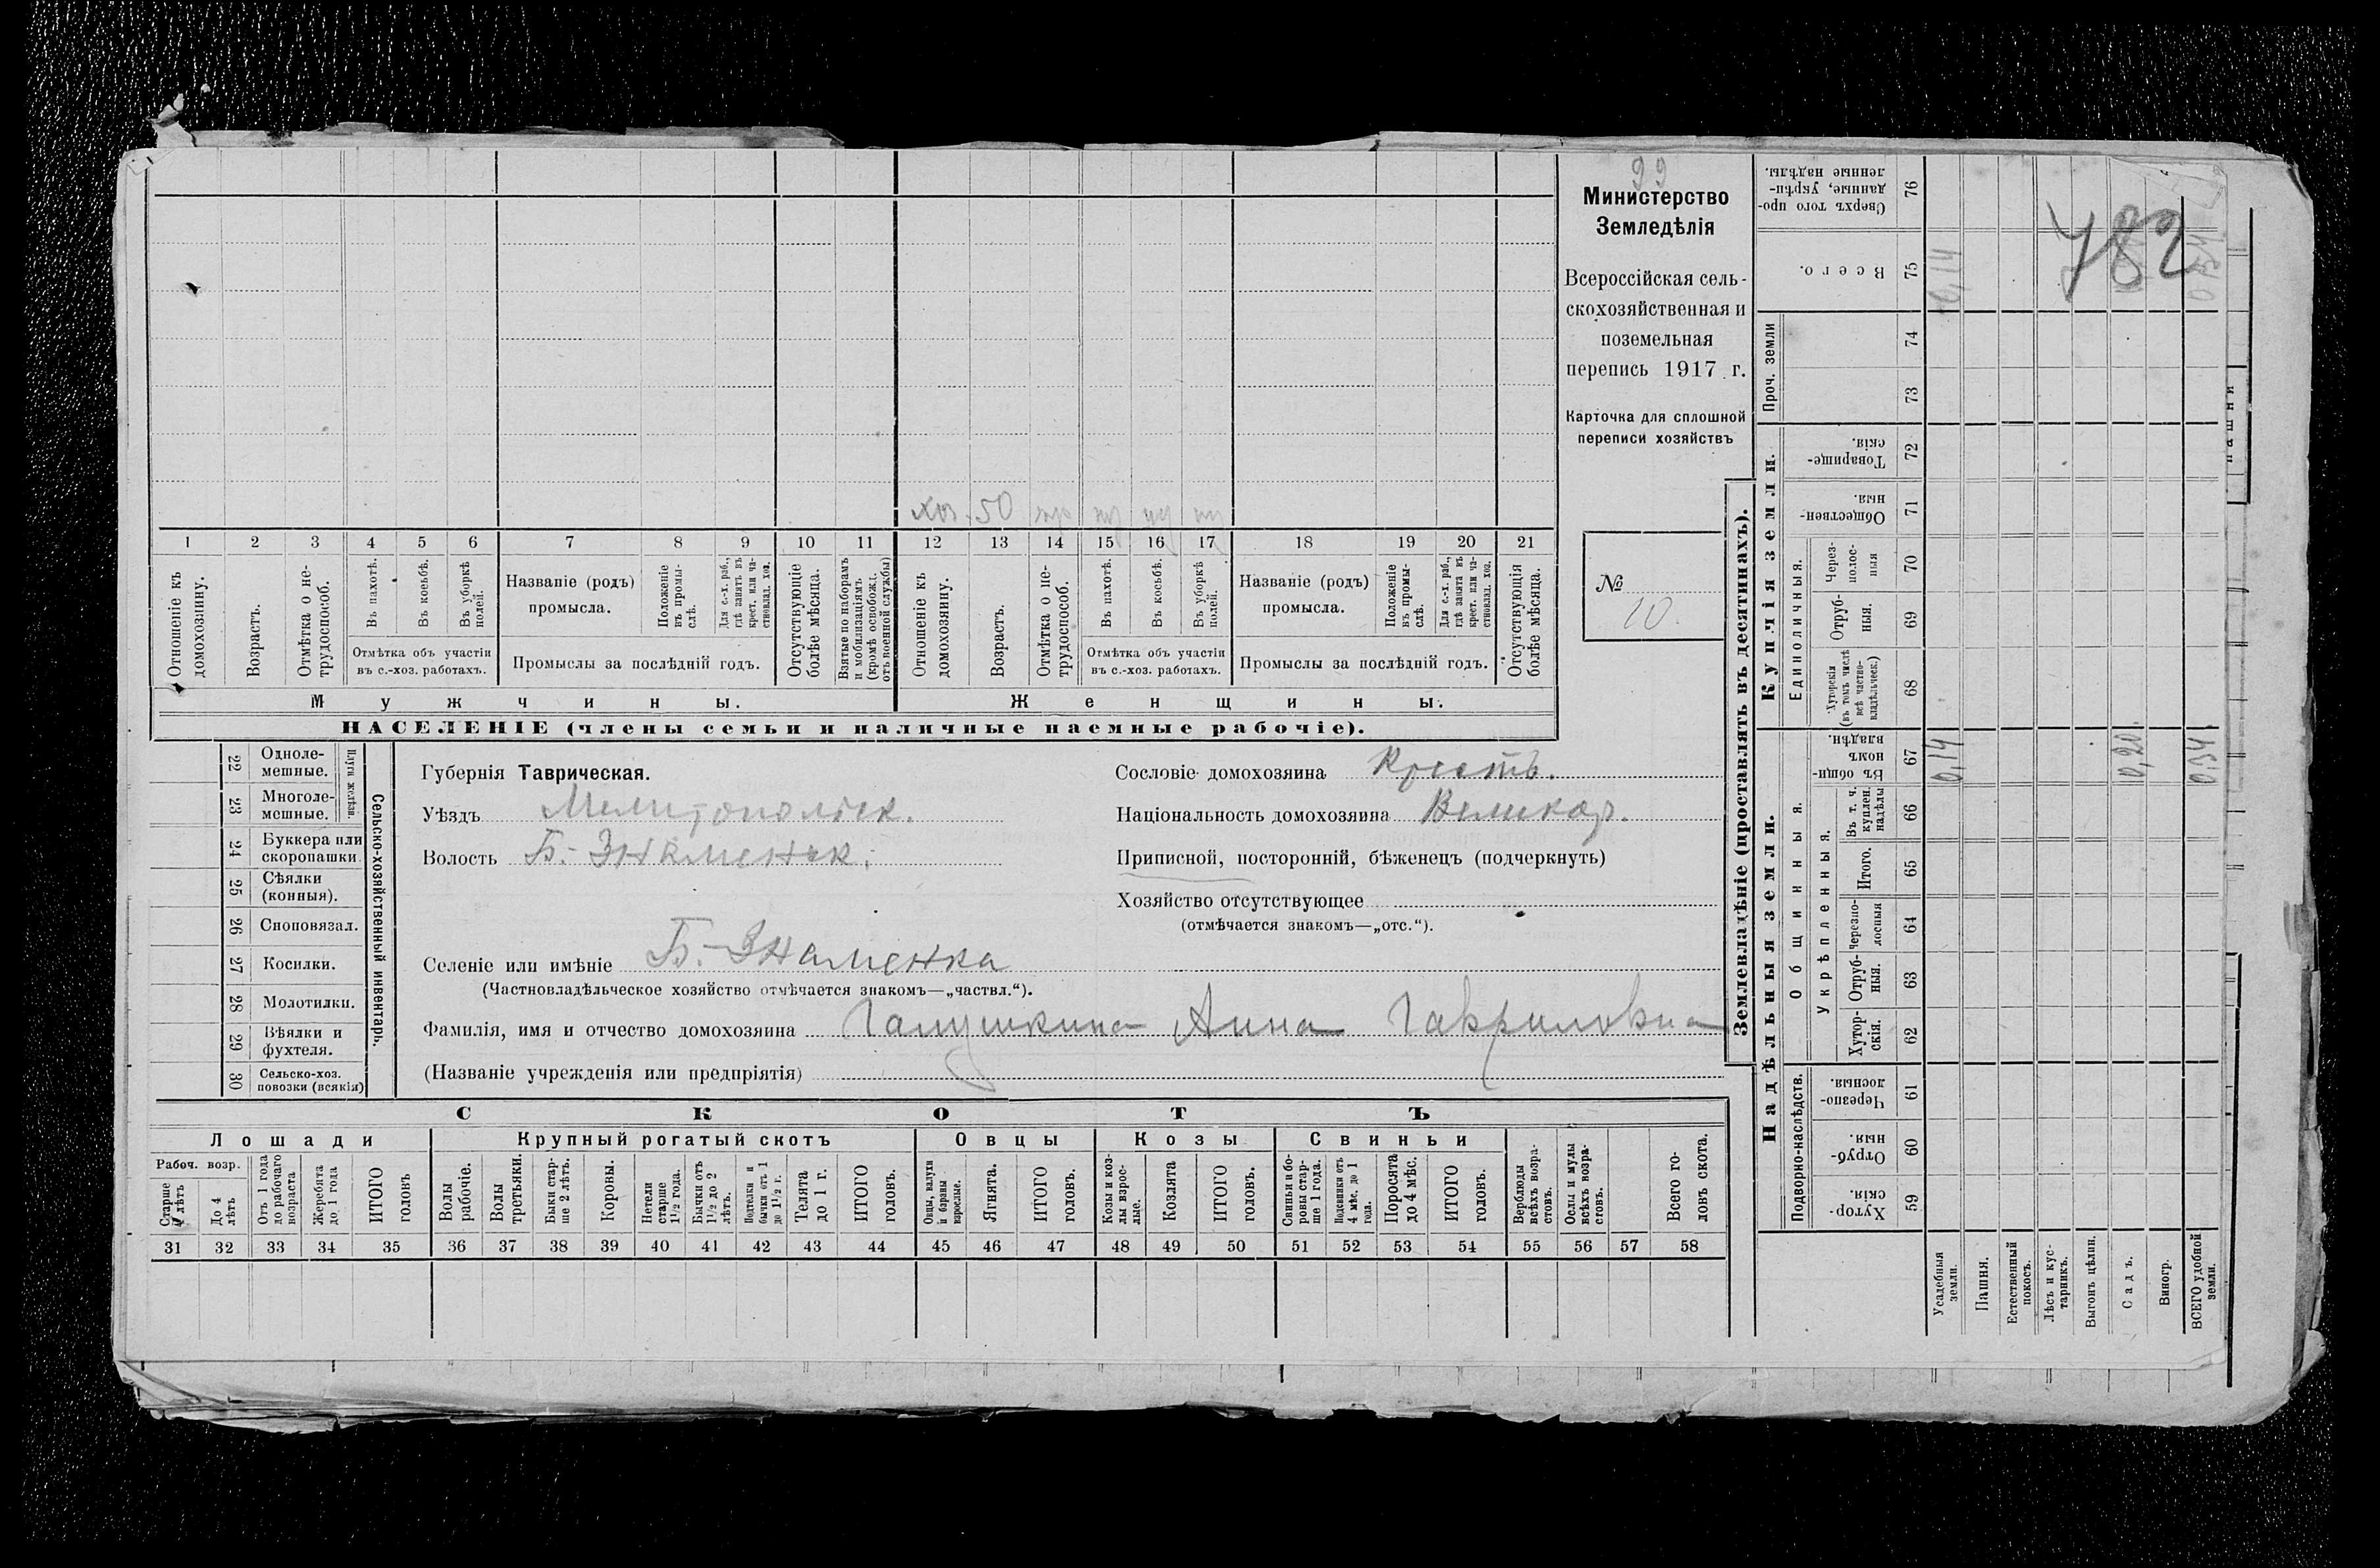 99
Министерство
Земледѣлія
Всероссійская сель-
скохозяйственная и
поземельная
перепись 1917 г.
Карточка для сплошной
переписи хозяйствъ
№
10.
782
хоз. 50
1 2 3 4 5 6 7 8 9 10 11 12 13 14 15 16 17 18 19 20 21
Отношеніе къ домохозяину.
Возрастъ.
Отмѣтка о не-трудоспособ.
Въ пахотѣ.
Въ косьбѣ.
Въ уборкѣ полей.
Отмѣтка объ участіи
въ с.-хоз. работахъ.
Названіе (родъ)
промысла.
Положеніе въ промы-слѣ.
Для с.-х. раб., гдѣ занятъ въ крест. или ча-стновлад. хоз.
Промыслы за послѣдній годъ.
Отсутствующіе болѣе мѣсяца.
Взятые по наборамъ и мобилизаціямъ (кромѣ освобожд. отъ военной службы)
Отношеніе къ домохозяину.
Возрастъ.
Отмѣтка о не-трудоспособ.
Въ пахотѣ.
Въ косьбѣ.
Въ уборкѣ полей.
Отмѣтка объ участіи
въ с.-хоз. работахъ.
Названіе (родъ)
промысла.
Положеніе въ промы-слѣ.
Для с.-х. раб., гдѣ занята въ крест. или ча-стновлад. хоз.
Промыслы за послѣдній годъ.
Отсутствующія болѣе мѣсяца.
Мужчины.
Женщины.
НАСЕЛЕНІЕ (члены семьи и наличные наемные рабочіе).
22 Одноле-мешные.
23 Многоле-мешные.
Плуги желѣзн.
24 Буккера или скоропашки
25 Сѣялки (конныя).
26 Сноповязал.
27 Косилки.
28 Молотилки.
29 Вѣялки и фухтеля.
30 Сельско-хоз. повозки (всякія)
Сельско-хозяйственный инвентарь.
Губернія Таврическая.
Уѣздъ Мелитопольск.
Волость Б.-Знаменск.
Сословіе домохозяина Крестъ.
Національность домохозяина Великор.
Приписной, посторонній, бѣженецъ (подчеркнуть)
Хозяйство отсутствующее
(отмѣчается знакомъ—„отс.“).
Селеніе или имѣніе Б.-Знаменка
(Частновладѣльческое хозяйство отмѣчается знакомъ—„частвл.“).
Фамилія, имя и отчество домохозяина Галушкина Анна Гавриловна
(Названіе учрежденія или предпріятія)
СКОТЪ
Лошади
Крупный рогатый скотъ
Овцы
Козы
Свиньи
Рабоч. возр.
Старше 4 лѣтъ
До 4 лѣтъ
Отъ 1 года до рабочаго возраста
Жеребята до 1 года
ИТОГО головъ
Волы рабочіе.
Волы третьяки.
Быки стар-ше 2 лѣтъ.
Коровы.
Нетели старше 1½ года.
Бычки отъ 1½ до 2 лѣтъ.
Подтелки и бычки отъ 1 до 1½ г.
Телята до 1 г.
ИТОГО головъ.
Овцы, валухи и бараны взрослые.
Ягнята.
ИТОГО головъ.
Козы и коз-лы взрос-лые.
Козлята
ИТОГО головъ.
Свиньи и бо-ровы стар-ше 1 года.
Подсвинки отъ 4 мѣс. до 1 года.
Поросята до 4 мѣс.
ИТОГО головъ.
Верблюды всѣхъ возра-стовъ.
Ослы и мулы всѣхъ возра-стовъ.
Всего го-ловъ скота.
31 32 33 34 35 36 37 38 39 40 41 42 43 44 45 46 47 48 49 50 51 52 53 54 55 56 57 58
Землевладѣніе (проставлять въ десятинахъ).
Надѣльныя земли.
Купчія земли.
Проч. земли
Подворно-наслѣдств.
Общинныя.
Укрѣпленныя.
Единоличныя.
Сверхъ того про-данные, укрѣп-ленные надѣлы. 76
Всего. 75 0,14 0,54
74
73
Товарище-скія. 72
Обществен-ныя. 71
Через-полос-ныя 70
Отруб-ныя. 69
Хуторскія (въ томъ числѣ всѣ частно-владѣльческ.) 68
Въ общин-номъ владѣн. 67 0,14 0,20 0,34
Въ т. ч. куплен. надѣлы 66
Итого. 65
Черезпо-лосныя 64
Отруб-ныя. 63
Хутор-скія. 62
Черезпо-лосныя. 61
Отруб-ныя. 60
Хутор-скія. 59
Усадебныя земли.
Пашня.
Естественный покосъ.
Лѣсъ и кус-тарникъ.
Выгонъ цѣлин.
Садъ.
Виногр.
ВСЕГО удобной земли.
пашни